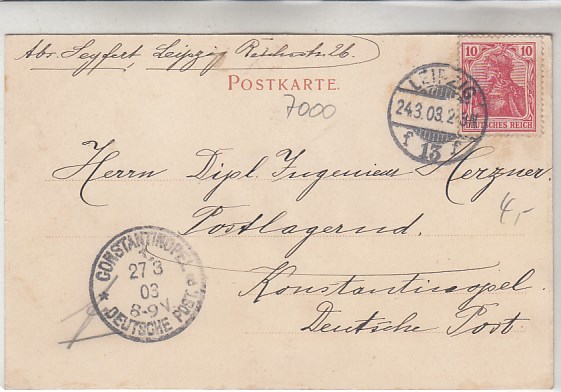 Abs. Seyfert, Leipzig Reichsstr. 26.
POSTKARTE.
7000
10 10
DEUTSCHES REICH
LEIPZIG
24.3.03. 2-3 N
f 13 f
Herrn Dipl. Ingenieur Herzner.
Postlagernd.
4,-
Konstantinopel
Deutsche Post.
CONSTANTINOPEL
27 3
03
8-9 V.
* DEUTSCHE POST. *